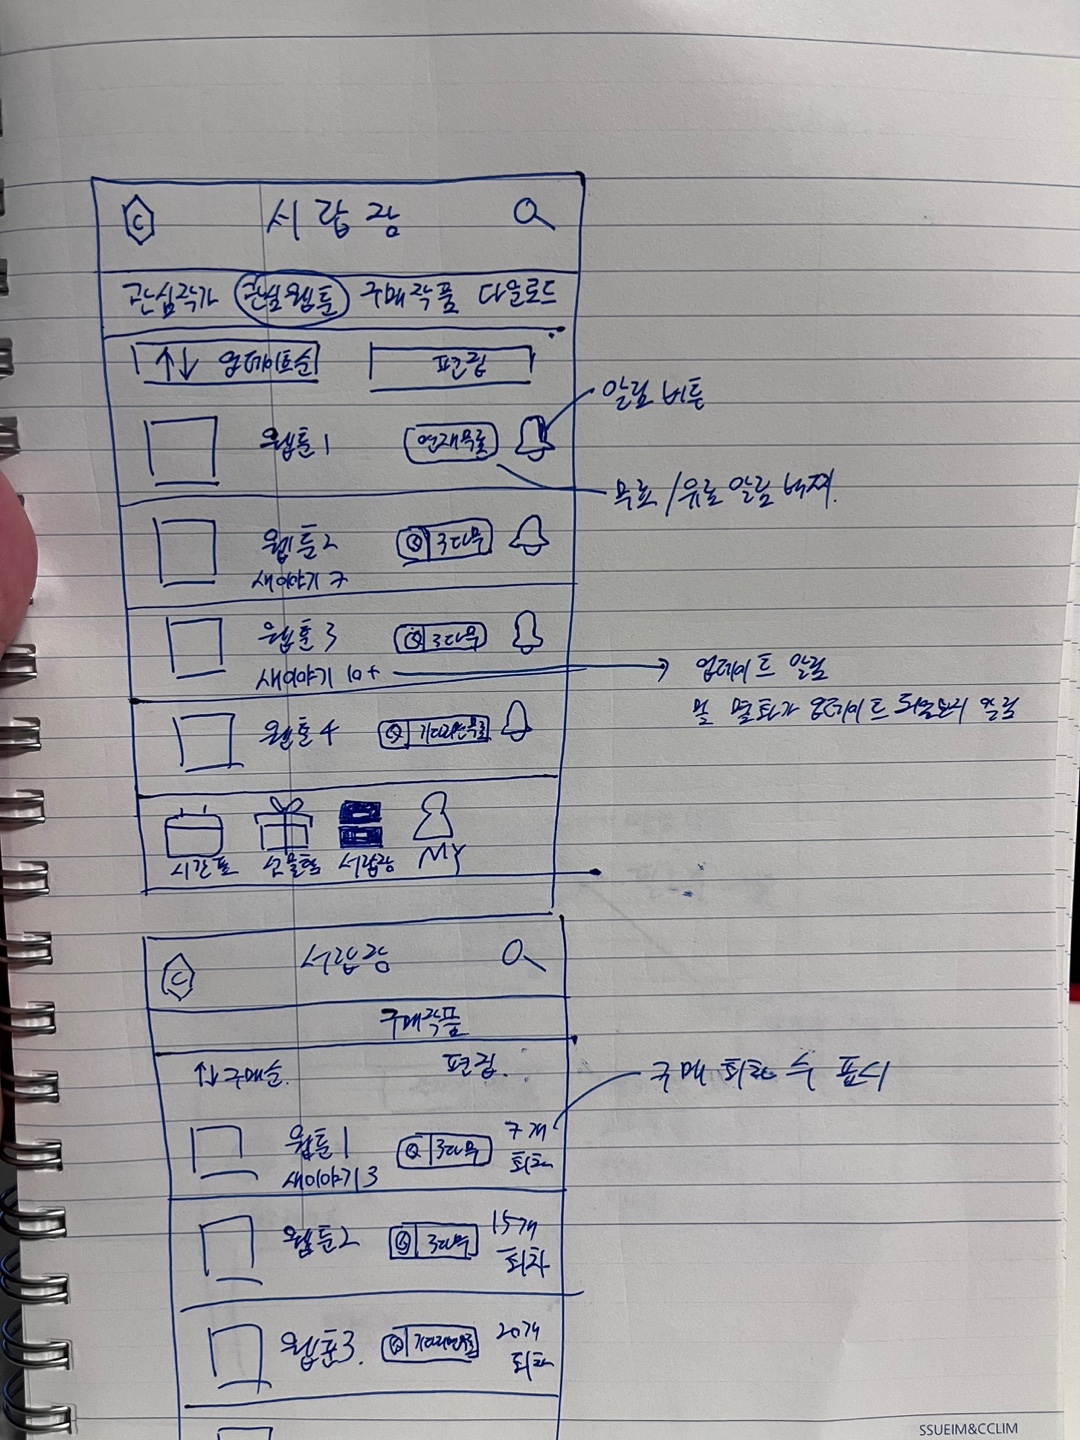 C 서랍장
관심작가 관심웹툰 구매작품 다운로드
↑↓ 업데이트순 편집
알림 버튼
웹툰 1 연재무료
무료/유료 알림 뱃지.
웹툰 2 3다무
새이야기 7
웹툰 3 3다무
새이야기 10+ → 업데이트 알림
몇 화가 업데이트 되었는지 알림
웹툰 4 기다리면무료
시간표 선물함 서랍장 MY
C 서랍장
구매작품
↑↓ 구매순. 편집.
구매 회차 수 표시
웹툰 1 3다무 7개 회차
새이야기 3
웹툰 2 3다무 15개 회차
웹툰 3. 기다리면무료 20개 회차
SSUEIM&CCLIM